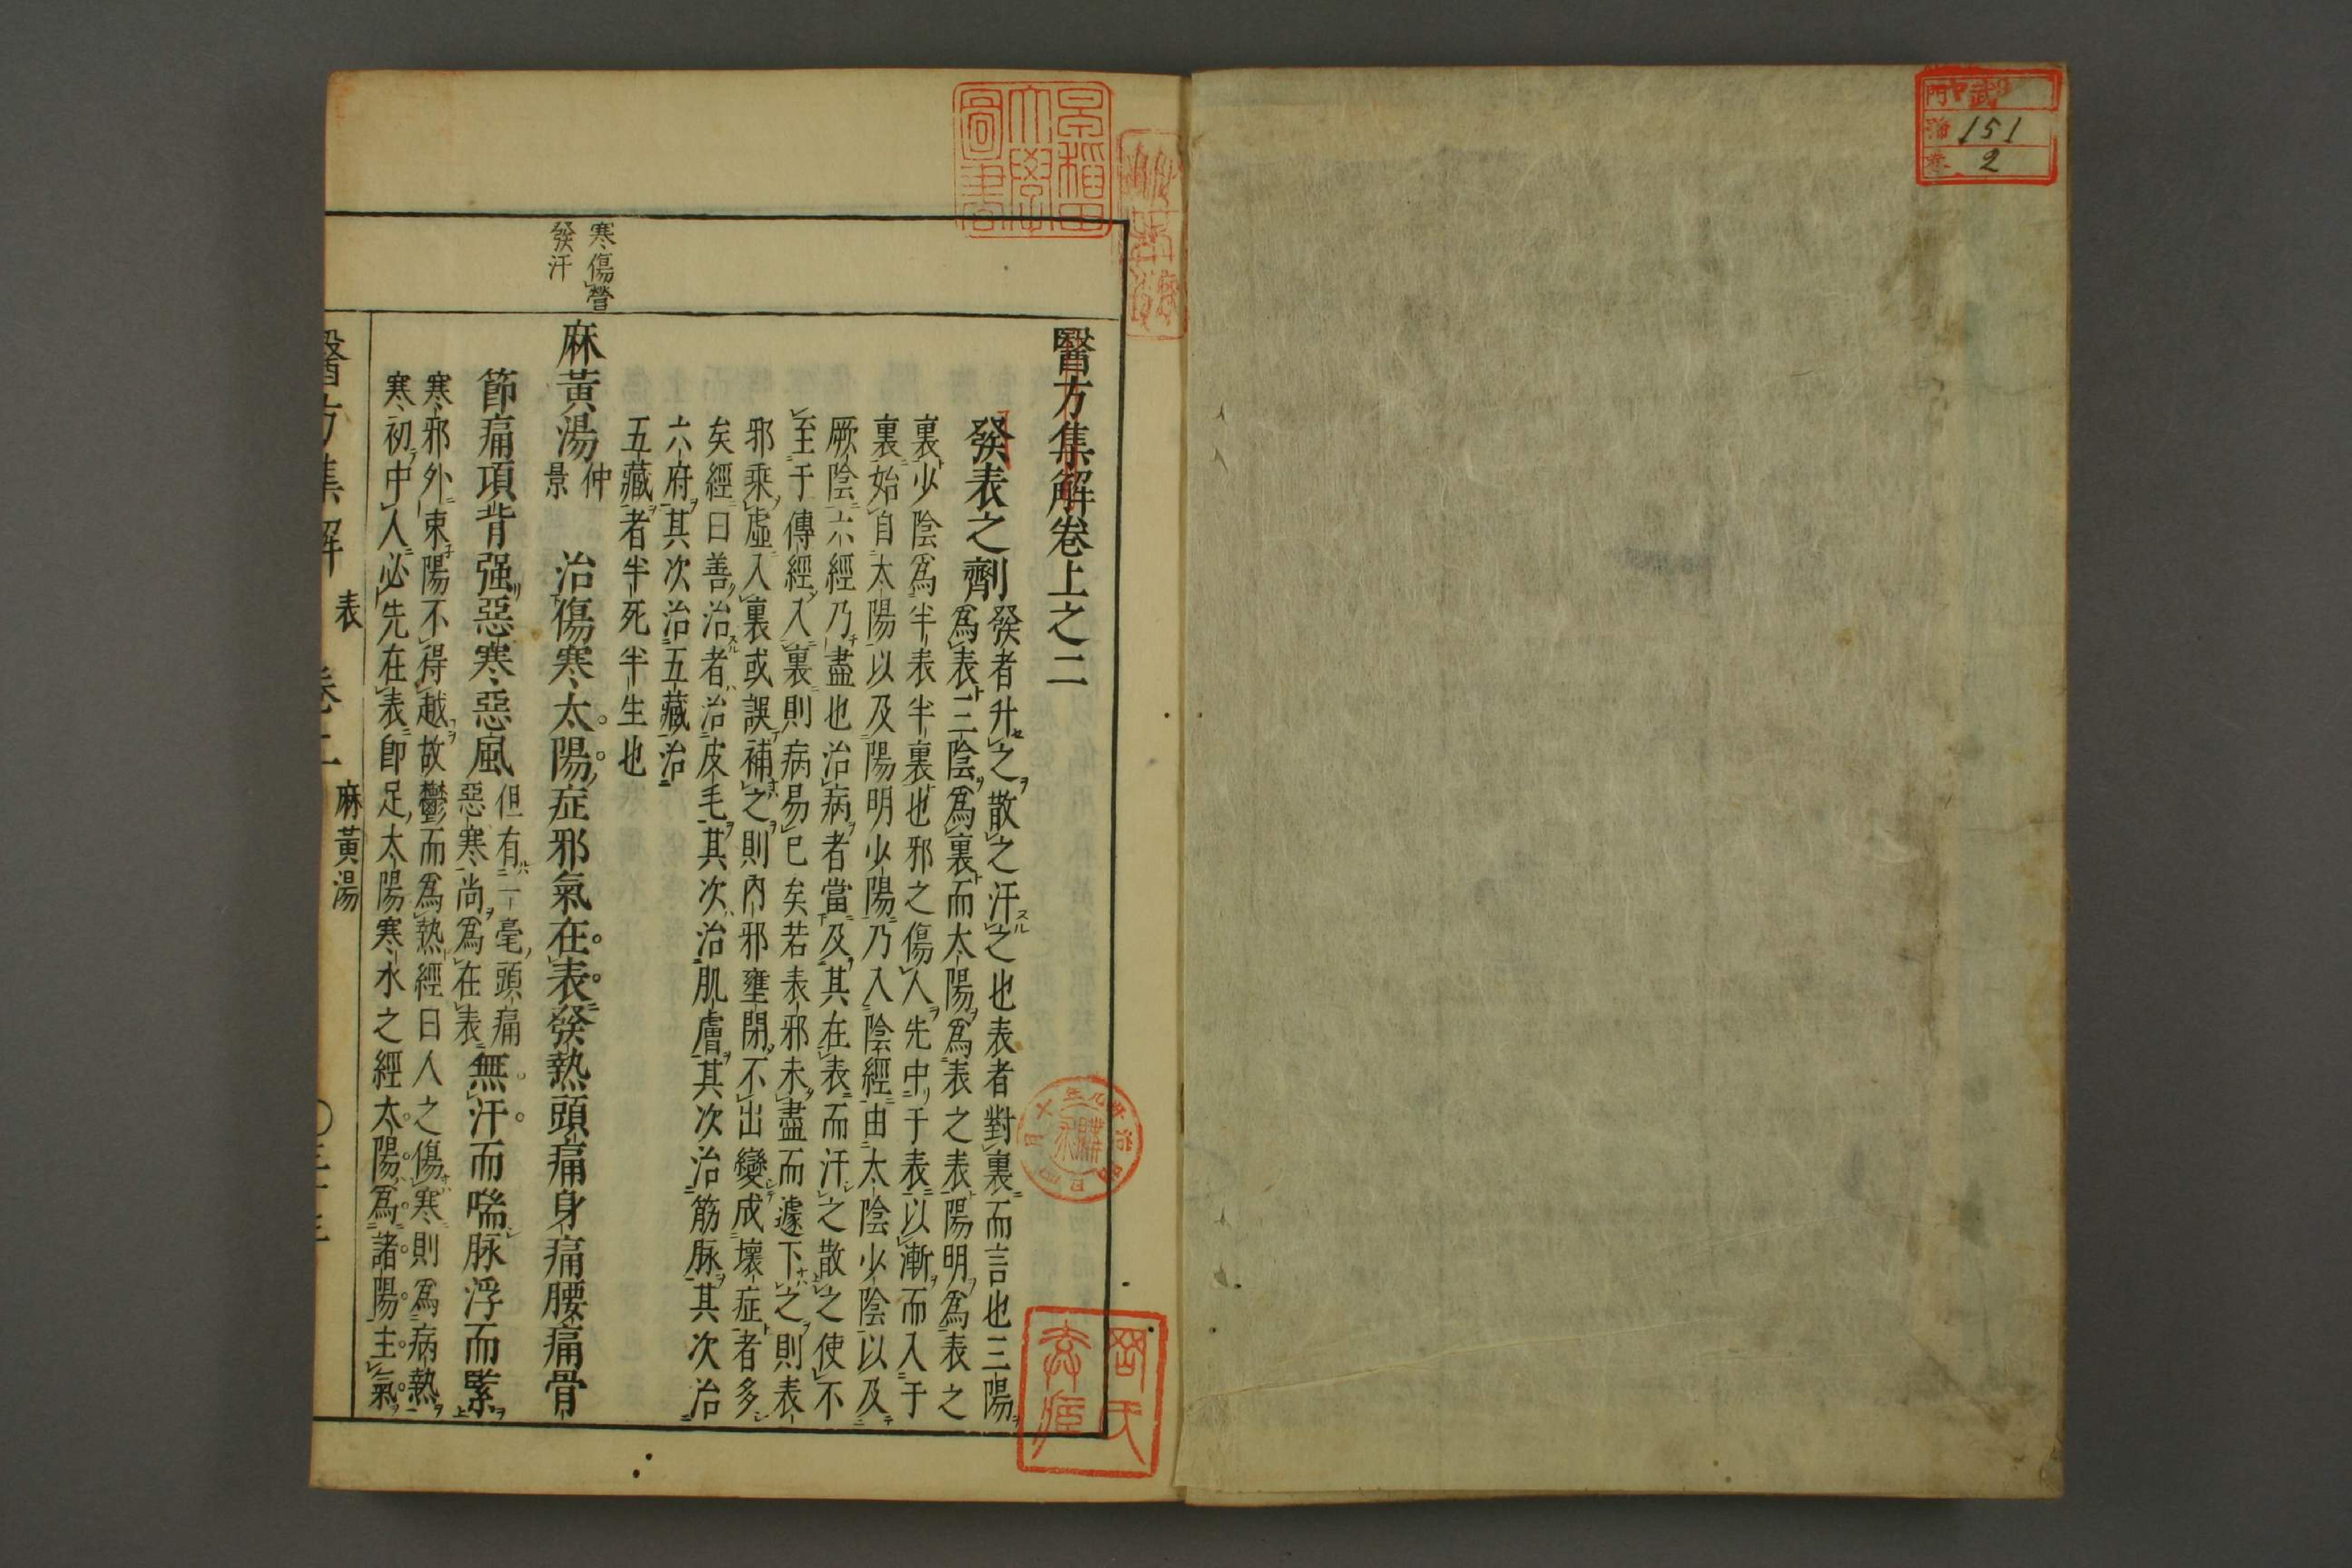 醫方集解卷上之二
發表之劑
發者升之散之汗之也表者對裏而言也三陽
爲表三陰爲裏而太陽爲表之表陽明爲表之
裏少陰爲半表半裏也邪之傷人先中于表以漸而入于
裏始自太陽以及陽明少陽乃入陰經由太陰少陰以及
厥陰六經乃盡也治病者當及其在表而汗之散之使不
至于傳經入裏則病易已矣若表邪未盡而遽下之則表
邪乘虛入裏或誤補之則內邪壅閉不出變成壞症者多
矣經曰善治者治皮毛其次治肌膚其次治筋脉其次治
六府其次治五藏治
五藏者半死半生也
寒傷營
發汗
麻黃湯 仲景 治傷寒太陽症邪氣在表發熱頭痛身痛腰痛骨
節痛項背强惡寒惡風 但有一毫頭痛
惡寒尚爲在表 無汗而喘脉浮而緊
寒邪外束陽不得越故鬱而爲熱經曰人之傷寒則爲病熱
寒初中人必先在表即足太陽寒水之經太陽爲諸陽主氣
醫方集解 表 卷二 麻黃湯
早稻田大學圖書
門
號 151
卷 2